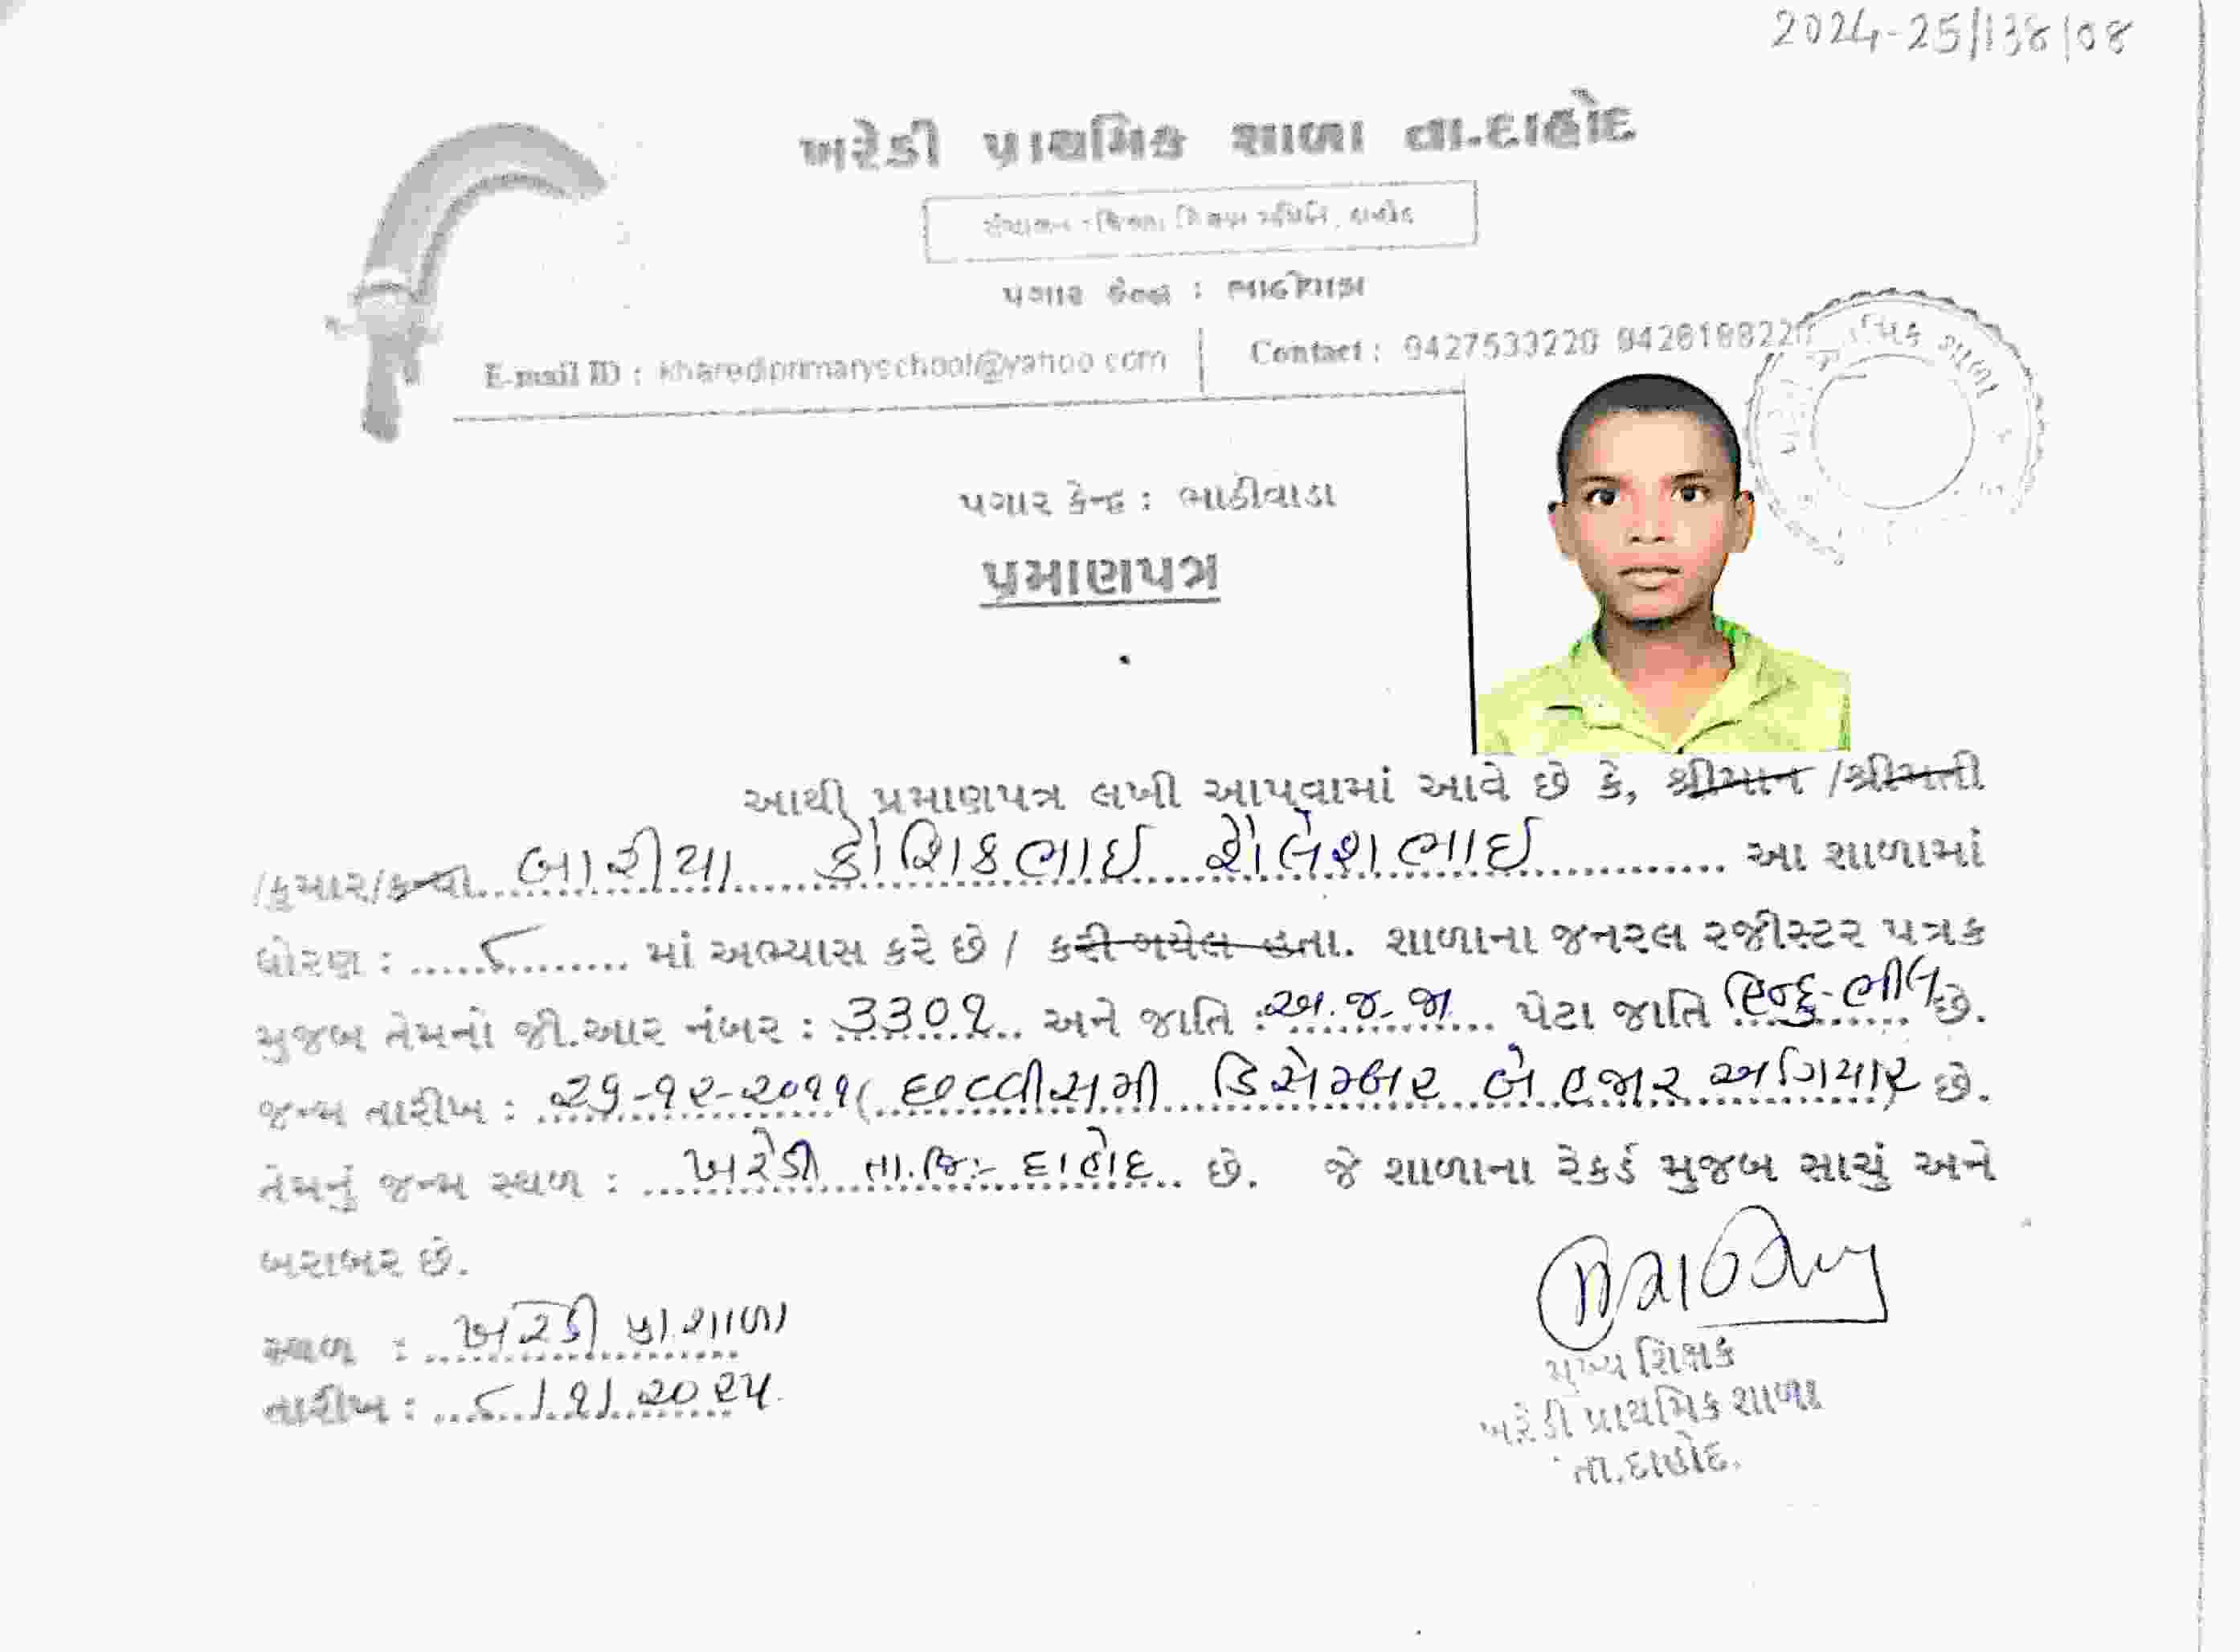 2024-25/138/08
ખરેડી પ્રાથમિક શાળા તા.દાહોદ
સંચાલન - જિલ્લા શિક્ષણ સમિતિ, દાહોદ
પગાર કેન્દ્ર : ભાઠીવાડા
E-mail ID : kharediprimaryschool@yahoo.com
Contact : 9427533220 9428188220
પગાર કેન્દ્ર : ભાઠીવાડા
પ્રમાણપત્ર
આથી પ્રમાણપત્ર લખી આપવામાં આવે છે કે, શ્રીમાન /શ્રીમતી
/કુમાર/કન્યા બારીયા કૌશિકભાઇ શૈલેશભાઇ આ શાળામાં
ધોરણ : ૮ માં અભ્યાસ કરે છે / કરી ગયેલ હતા. શાળાના જનરલ રજીસ્ટર પત્રક
મુજબ તેમનો જી.આર નંબર : 330૧ અને જાતિ : અ.જ.જા પેટા જાતિ હિન્દુ-ભીલ છે.
જન્મ તારીખ : ૨૬-૧૨-૨૦૧૧( છવ્વીસમી ડિસેમ્બર બે હજાર અગિયાર) છે.
તેમનું જન્મ સ્થળ : ખરેડી તા.જિ:- દાહોદ છે. જે શાળાના રેકર્ડ મુજબ સાચું અને
બરાબર છે.
સ્થળ : ખરેડી પ્રા.શાળા
તારીખ : ૮/૧/૨૦૨૫
મુખ્ય શિક્ષક
ખરેડી પ્રાથમિક શાળા
તા.દાહોદ.